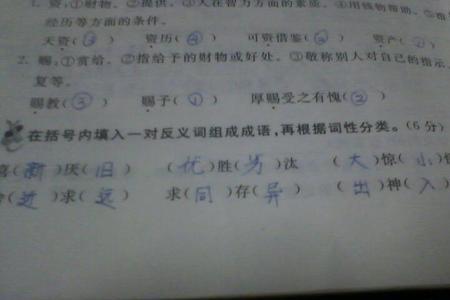 1. 资:①财物。②提供。③人在智力方面的素质。④用钱物帮助。⑤
经历等方面的条件。
天资(③) 资历(⑤) 可资借鉴(②) 资产(①)
2. 赐:①赏给。②指给予的财物或好处。③敬称别人对自己的指示、
复等。
赐教(③) 赐予(①) 厚赐受之有愧(②)
在括号内填入一对反义词组成成语,再根据词性分类。(6分)
喜(新)厌(旧) (优)胜(劣)汰 (大)惊(小)
(近)求(远) 求(同)存(异) (出)神(入)